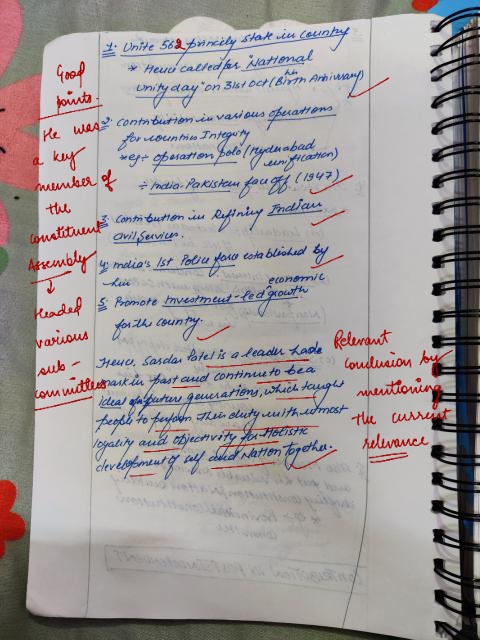 1. Unite 562 princely state in country
* Hence called for "National
Unity day" on 31st Oct (his Birth Anniversary)
2. Contribution in various operations
for countries Integrity
* eg ÷ operation polo (Hyderabad
unification)
÷ India-Pakistan face off (1947)
3. Contribution in Refining Indian
Civil Services.
4. India's 1st Police force established by
him
5. Promote Investment-led economic growth
for the country.
Hence, Sardar Patel is a leader
mark in past and continue to be a
ideal future generations, which taught
people to perform their duty with utmost
loyality and objectivity for Holistic
development of self and Nation together.
Good
points.
He was
a key
member of
the
constituent
Assembly
↓
Headed
various
sub-
committees
Relevant
conclusion by
mentioning
the current
relevance